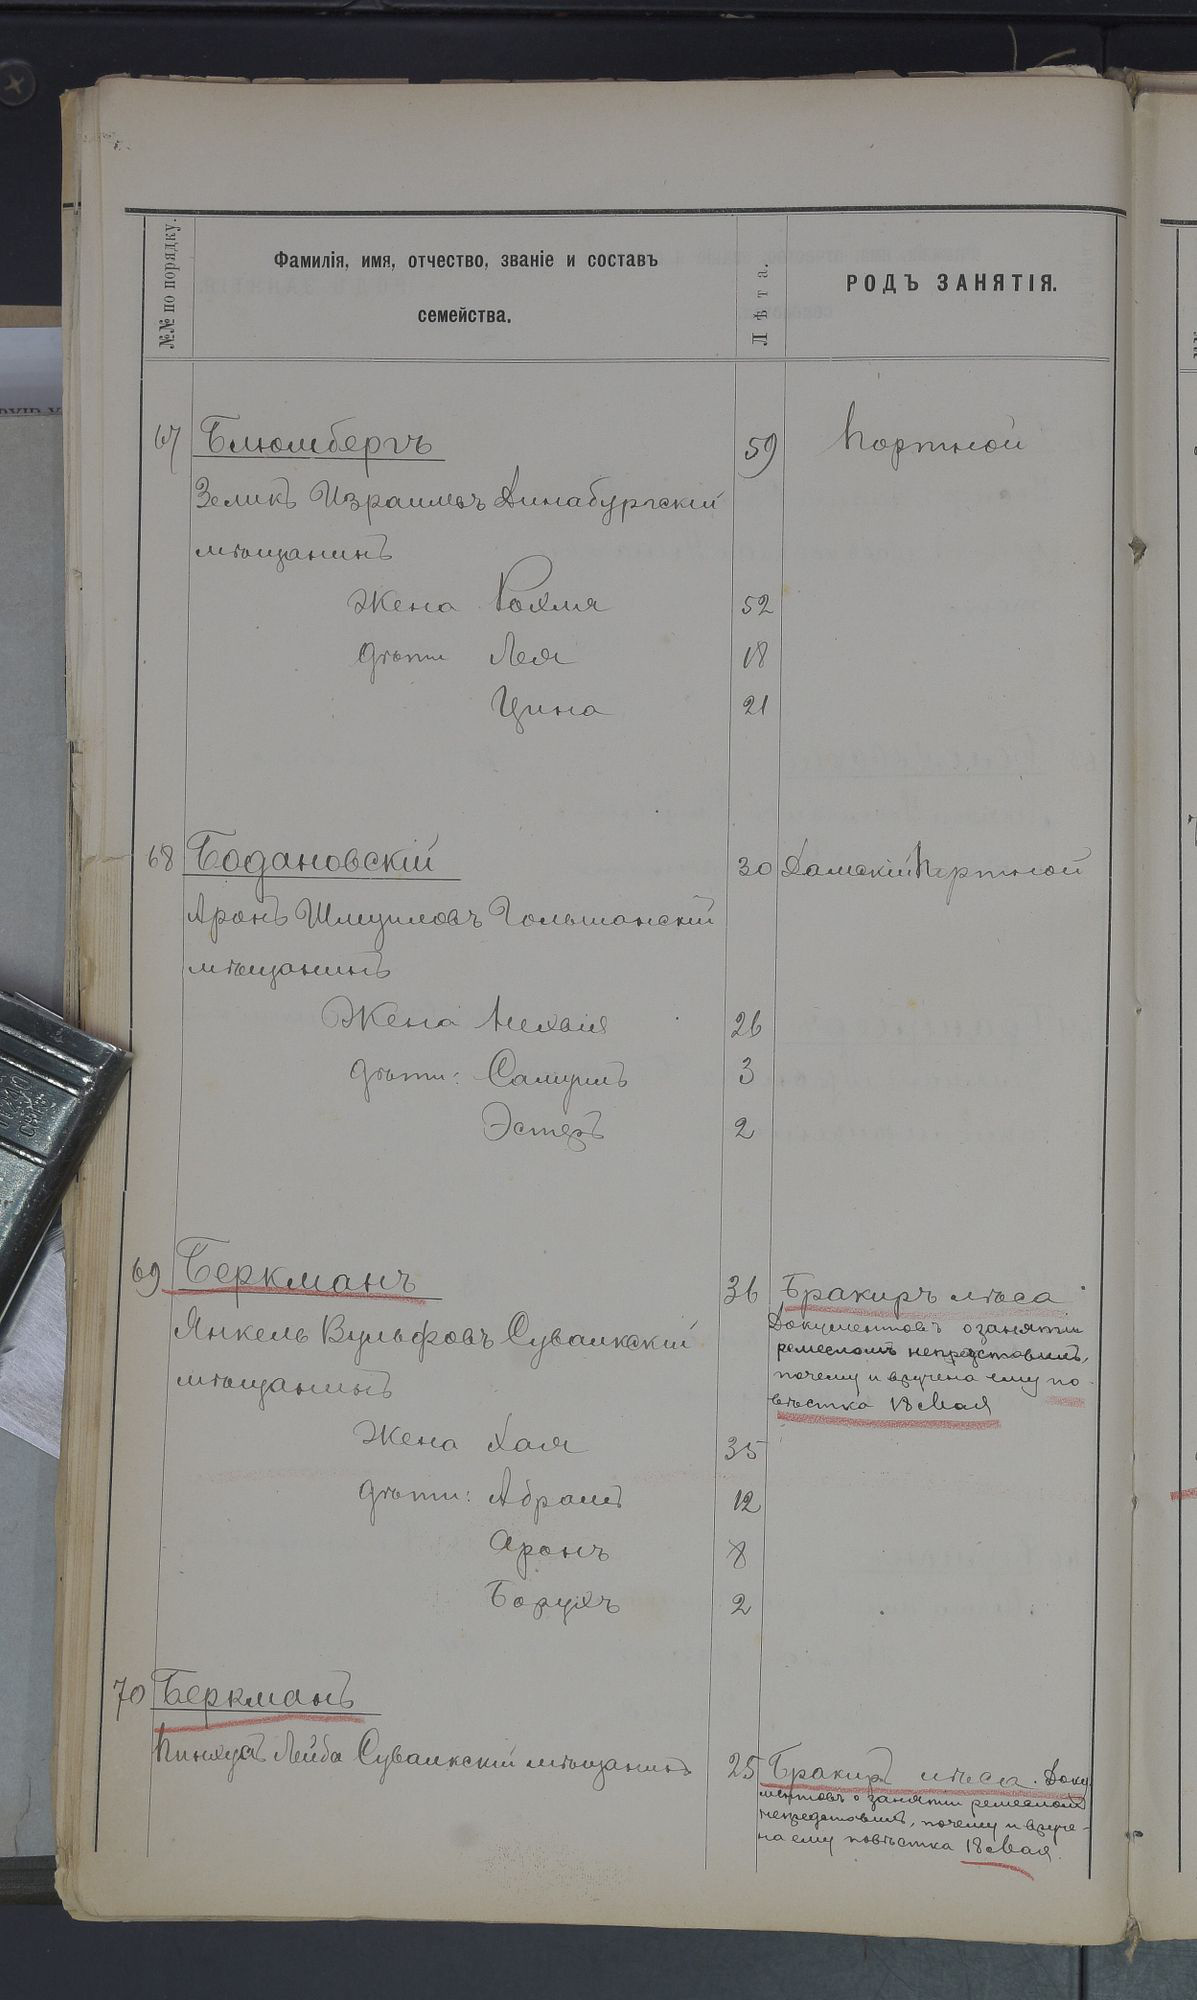 №№ по порядку.
Фамилія, имя, отчество, званіе и составъ
семейства.
Лѣта.
РОДЪ ЗАНЯТІЯ.
67 Блюмбергъ 59 Портной
Зеликъ Израилевъ Динабургскій
мѣщанинъ
Жена Рохля 52
дѣти Лея 18
Цина 21
68 Бодановскій 30 Дамскій Портной
Аронъ Шмуиловъ Гольшанскій
мѣщанинъ
Жена Нехвія 26
дѣти: Самуилъ 3
Эстеръ 2
69 Беркманъ 36 Бракиръ лѣса
Янкель Вульфовъ Сувалкскій
мѣщанинъ
Документовъ о занятіи
ремесломъ непредставилъ,
почему и вручена ему по-
вѣстка 18 Мая
Жена Хая 35
дѣти: Абрамъ 12
Аронъ 8
Борухъ 2
70 Беркманъ
Пинхусъ Лейба Сувалкскій мѣщанинъ 25 Бракиръ лѣса. Доку-
ментовъ о занятіи ремесломъ
непредставилъ, почему и вруче-
на ему повѣстка 18 Мая.